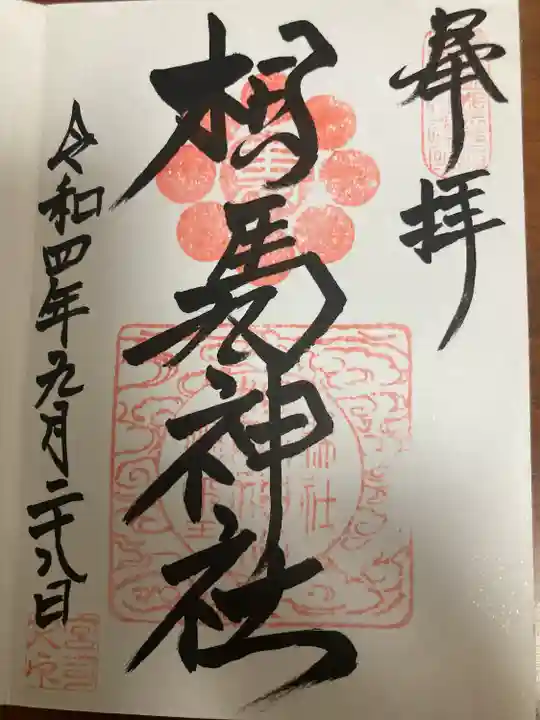 奉拝
相馬神社
令和四年九月二十八日